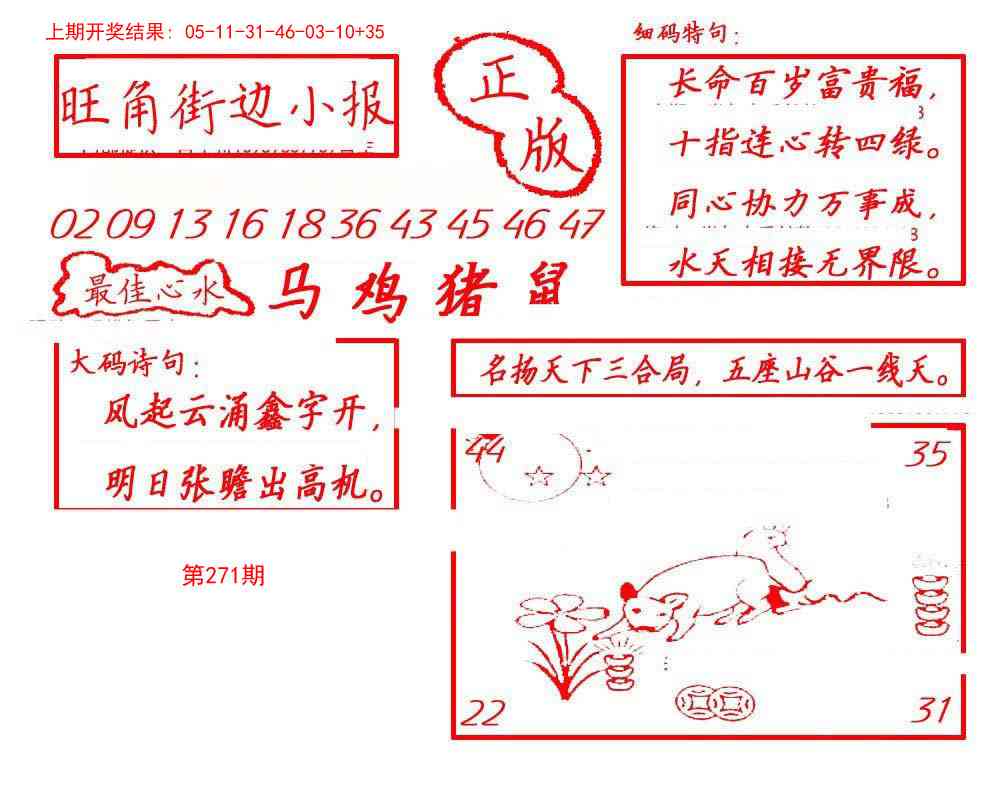 上期开奖结果：05-11-31-46-03-10+35
旺角街边小报
正版
细码特句：
长命百岁富贵福，
十指连心转四绿。
同心协力万事成，
水天相接无界限。
02 09 13 16 18 36 43 45 46 47
最佳心水
马鸡猪鼠
大码诗句：
风起云涌鑫字开，
明日张瞻出高机。
名扬天下三合局，五座山谷一线天。
44
35
22
31
第271期